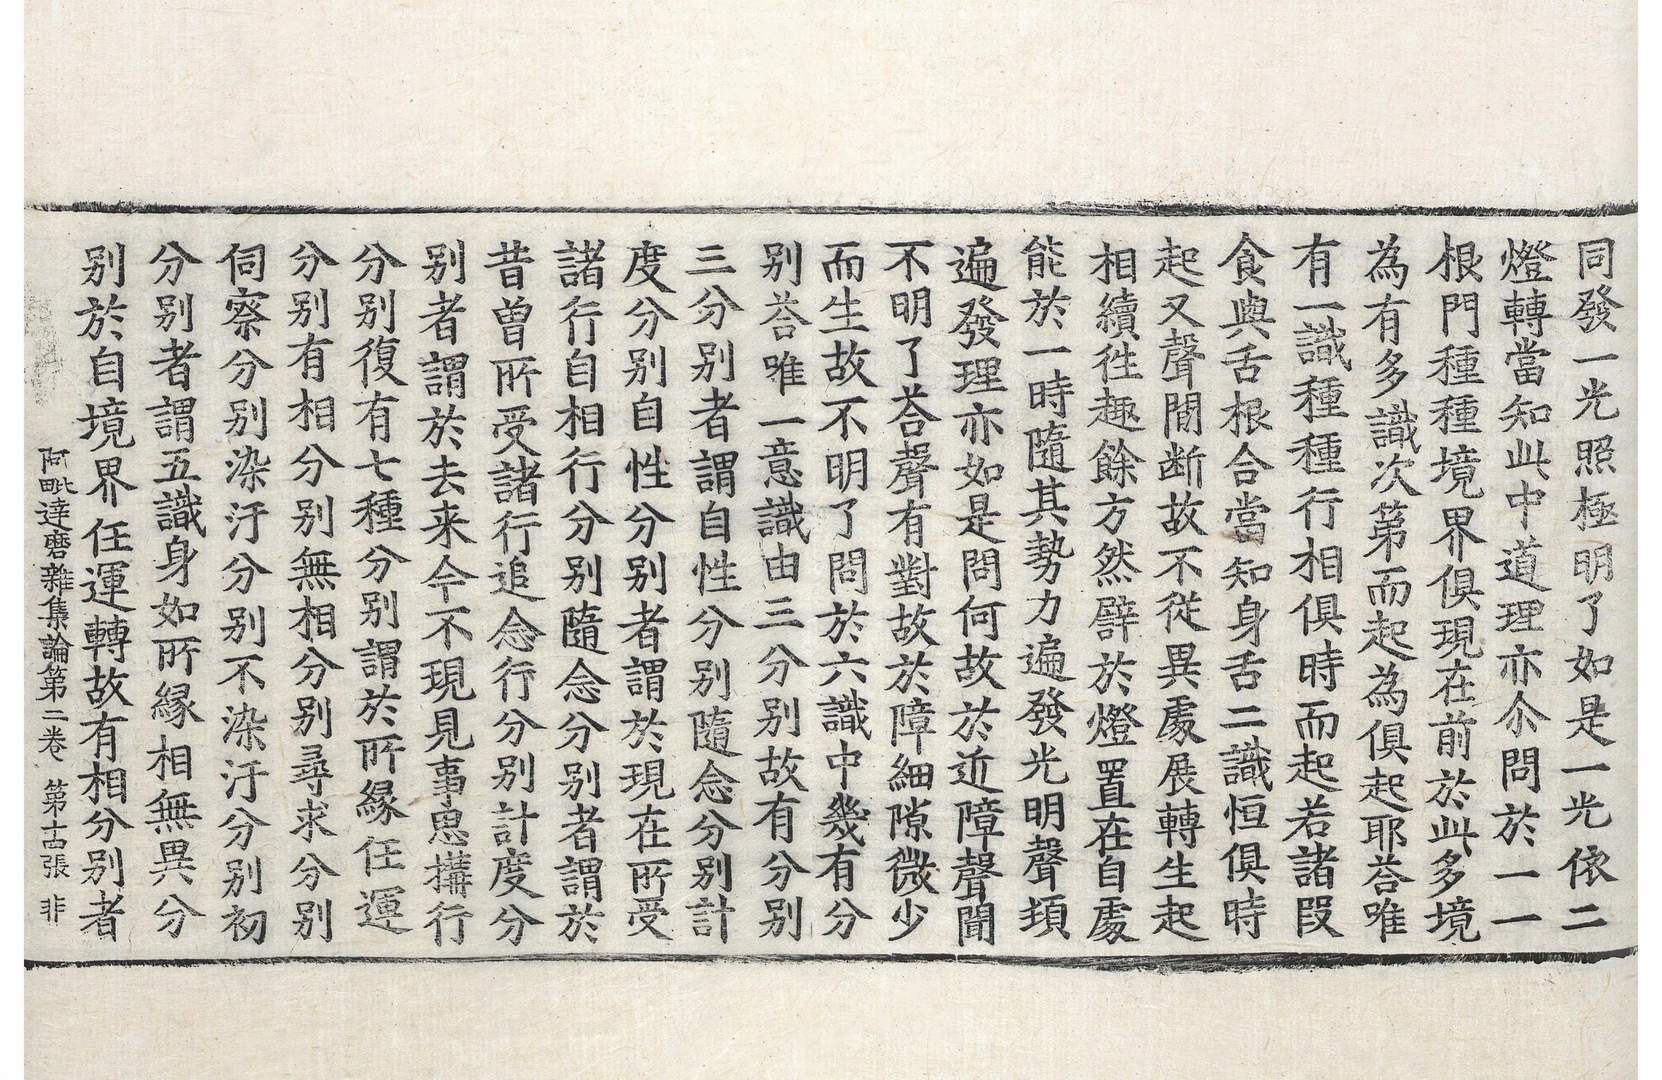 同發一光照極明了如是一光依二
燈轉當知此中道理亦尒問於一一
根門種種境界俱現在前於此多境
為有多識次第而起為俱起耶荅唯
有一識種種行相俱時而起若諸段
食與舌根合當知身舌二識恒俱時
起又聲閒断故不從異處展轉生起
相續徃趣餘方然譬於燈置在自處
能於一時隨其勢力遍發光明聲頓
遍發理亦如是問何故於近障聲聞
不明了荅聲有對故於障細隙微少
而生故不明了問於六識中幾有分
别荅唯一意識由三分别故有分别
三分别者謂自性分别隨念分别計
度分别自性分别者謂於現在所受
諸行自相行分别隨念分别者謂於
昔曾所受諸行追念行分别計度分
别者謂於去来今不現見事思搆行
分别復有七種分别謂於所緣任運
分别有相分别無相分别尋求分别
伺察分别染汙分别不染汙分别初
分别者謂五識身如所緣相無異分
别於自境界任運轉故有相分别者
阿毗達磨雜集論第二卷 第十四張 非